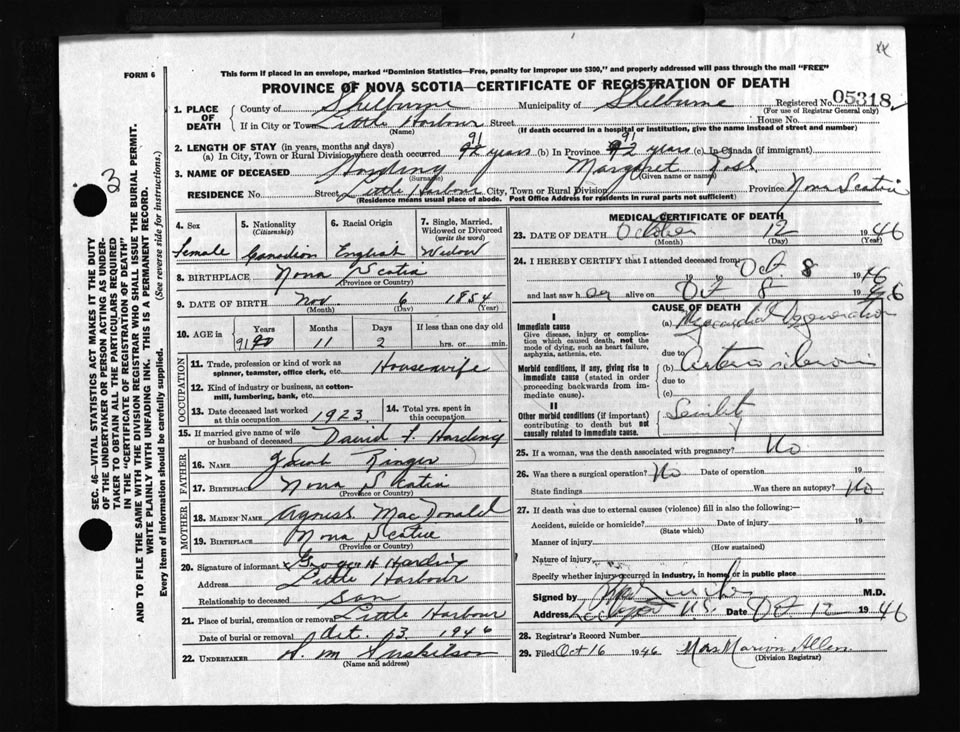 FORM 6
This form if placed in an envelope, marked "Dominion Statistics—Free, penalty for improper use $300," and properly addressed will pass through the mail "FREE"
PROVINCE OF NOVA SCOTIA—CERTIFICATE OF REGISTRATION OF DEATH
1. PLACE OF DEATH County of Shelburne Municipality of Shelburne Registered No. 05318
(For use of Registrar General only)
If in City or Town Little Harbour Street House No.
(Name) (If death occurred in a hospital or institution, give the name instead of street and number)
2. LENGTH OF STAY (in years, months and days)
(a) In City, Town or Rural Division where death occurred 91 years (b) In Province 91 years (c) In Canada (if immigrant)
3. NAME OF DECEASED Harding Margaret Rose
(Surname) (Given name or names)
RESIDENCE No. Street Little Harbour City, Town or Rural Division Province Nova Scotia
(Residence means usual place of abode. Post Office Address for residents in rural parts not sufficient)
4. Sex 5. Nationality (Citizenship) 6. Racial Origin 7. Single, Married, Widowed or Divorced (write the word)
Female Canadian English Widow
8. BIRTHPLACE Nova Scotia
(Province or Country)
9. DATE OF BIRTH Nov. 6 1854
(Month) (Day) (Year)
10. AGE in Years Months Days If less than one day old
91 11 2 hrs. or min.
OCCUPATION
11. Trade, profession or kind of work as spinner, teamster, office clerk, etc. Housewife
12. Kind of industry or business, as cotton-mill, lumbering, bank, etc.
13. Date deceased last worked at this occupation 1923 14. Total yrs. spent in this occupation
15. If married give name of wife or husband of deceased David F. Harding
FATHER
16. NAME Jacob Ringer
17. Birthplace Nova Scotia
(Province or Country)
MOTHER
18. MAIDEN NAME Agnes S. MacDonald
19. BIRTHPLACE Nova Scotia
(Province or Country)
20. Signature of informant George H Harding
Address Little Harbour
Relationship to deceased son
21. Place of burial, cremation or removal Little Harbour
Date of burial or removal Oct. 13. 1946
22. UNDERTAKER
(Name and address)
MEDICAL CERTIFICATE OF DEATH
23. DATE OF DEATH October 12 1946
(Month) (Day) (Year)
24. I HEREBY CERTIFY that I attended deceased from Oct 8 1946
19 to 19
and last saw her alive on Oct 8 1946
CAUSE OF DEATH
I
Immediate cause
Give disease, injury or complication which caused death, not the mode of dying, such as heart failure, asphyxia, asthenia, etc.
(a) Myocardial Degeneration
due to
Morbid conditions, if any, giving rise to immediate cause (stated in order proceeding backwards from immediate cause).
(b) Arterio sclerosis
due to
(c)
II
Other morbid conditions (if important) contributing to death but not causally related to immediate cause.
Senility
25. If a woman, was the death associated with pregnancy? No
26. Was there a surgical operation? No Date of operation 19
State findings Was there an autopsy? No
27. If death was due to external causes (violence) fill in also the following:—
Accident, suicide or homicide? Date of injury 19
(State which)
Manner of injury
(How sustained)
Nature of injury
Specify whether injury occurred in industry, in home, or in public place
Signed by M.D.
Address N.S. Date Oct 12 1946
28. Registrar's Record Number
29. Filed Oct 16 1946 Mrs Marion Allen
(Division Registrar)
23
SEC. 46—VITAL STATISTICS ACT MAKES IT THE DUTY OF THE UNDERTAKER OR PERSON ACTING AS UNDERTAKER TO OBTAIN ALL THE PARTICULARS REQUIRED IN THE "CERTIFICATE OF REGISTRATION OF DEATH"
AND TO FILE THE SAME WITH THE DIVISION REGISTRAR WHO SHALL ISSUE THE BURIAL PERMIT.
WRITE PLAINLY WITH UNFADING INK. THIS IS A PERMANENT RECORD.
Every item of information should be carefully supplied. (See reverse side for instructions.)